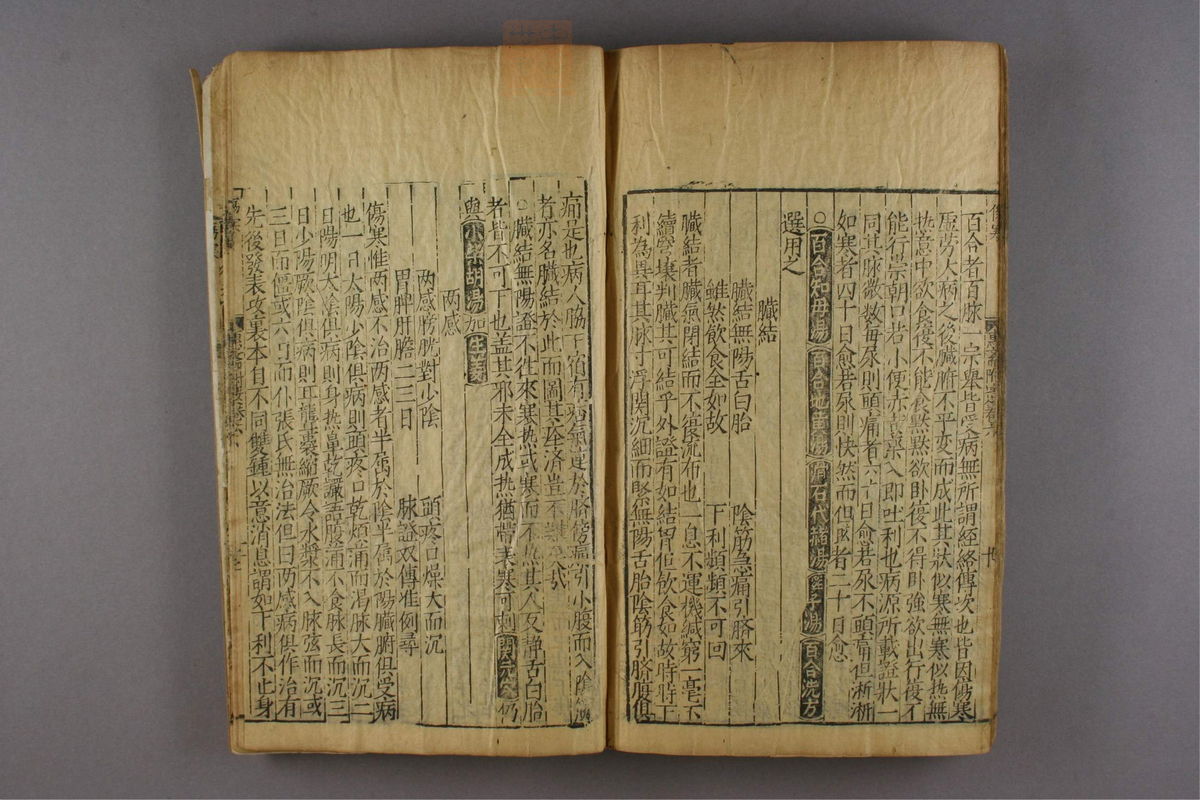 百合者百脉一宗舉皆受病無所謂經絡傳次也皆因傷寒
虛勞大病之後臟腑不平变而成此其狀似寒無寒似热無
热意中欲食復不能食黙黙欲卧復不得卧強欲出行復不
能行崇朝口若小便赤藥入即吐利也病源所載證狀一
同其脉微数每尿則頭痛者六十日愈若尿不頭痛但淅淅
如寒者四十日愈若尿則快然而但眩者二十日愈
○百合知母湯 百合地黄湯 滑石代赭湯 雞子湯 百合洗方
選用之
臟結
臟結無陽舌白胎 陰筋急痛引臍來
雖然飲食全如故 下利頻頻不可回
臟結者臟氣閉結而不復流布也一息不運機緘窮一毫不
續穹壤判臟其可結乎外證有如結胷但飲食如故時時下
利為異耳其脉寸浮関沉細而緊無陽舌胎陰筋引臍腹俱
痛是也病人脇下宿有痞氣連於臍傍痛引小腹而入陰筋
者亦名臟結於此而圖其生济豈不難哉
○臟結無陽證不往來寒热或寒而不热其人反静舌白胎
者皆不可下也盖其邪未全成热猶帶表寒可刺関元穴仍
與小柴胡湯加生姜
两感
两感膀胱對少陰 頭疼口燥大而沉
胃脾肝膽二三日 脉證双傳准例尋
傷寒惟两感不治两感者半属於陰半属於陽臟腑俱受病
也一日太陽少陰俱病則頭疼口乾煩滿而渴脉大而沉二
日陽明大陰俱病則身热鼻乾譫語腹滿不食脉長而沉三
日少陽厥陰俱病則耳聾囊縮厥冷水漿不入脉弦而沉或
三日而僵或六日而仆張氏無治法但曰两感病俱作治有
先後發表攻裏本自不同雙鍾以意消息謂如下利不止身